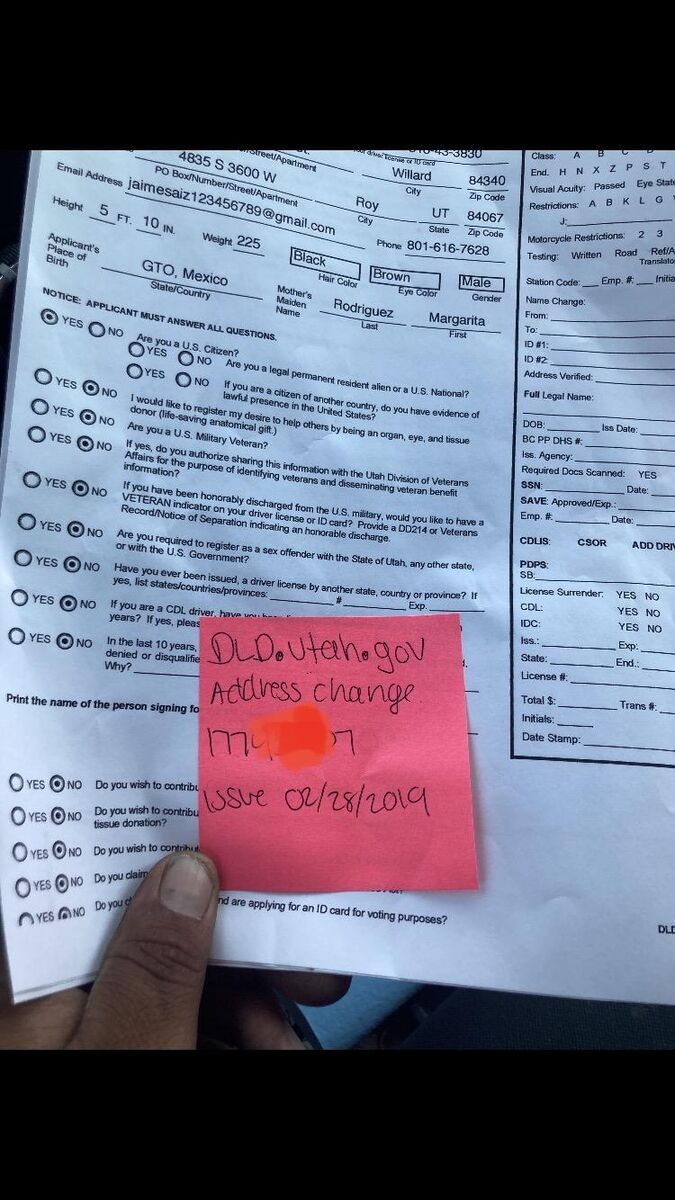 4835 S 3600 W
Street/Apartment
your driver license or ID card
Willard
84340
PO Box/Number/Street/Apartment
City
Zip Code
Email Address jaimesaiz123456789@gmail.com
Roy
UT
84067
City
State
Zip Code
Height 5 FT. 10 IN. Weight 225
Phone 801-616-7628
Black
Brown
Male
Hair Color
Eye Color
Gender
Applicant's
Place of
Birth
GTO, Mexico
State/Country
Mother's
Maiden
Name
Rodriguez
Margarita
Last
First
NOTICE: APPLICANT MUST ANSWER ALL QUESTIONS.
YES NO Are you a U.S. Citizen?
YES NO Are you a legal permanent resident alien or a U.S. National?
YES NO If you are a citizen of another country, do you have evidence of
lawful presence in the United States?
YES NO I would like to register my desire to help others by being an organ, eye, and tissue
donor (life-saving anatomical gift.)
YES NO Are you a U.S. Military Veteran?
YES NO If yes, do you authorize sharing this information with the Utah Division of Veterans
Affairs for the purpose of identifying veterans and disseminating veteran benefit
information?
YES NO If you have been honorably discharged from the U.S. military, would you like to have a
VETERAN indicator on your driver license or ID card? Provide a DD214 or Veterans
Record/Notice of Separation indicating an honorable discharge.
YES NO Are you required to register as a sex offender with the State of Utah, any other state,
or with the U.S. Government?
YES NO Have you ever been issued, a driver license by another state, country or province? If
yes, list states/countries/provinces: # Exp.
YES NO If you are a CDL driver, have you
years? If yes, pleas
YES NO In the last 10 years,
denied or disqualifie
Why?
Print the name of the person signing fo
YES NO Do you wish to contribu
YES NO Do you wish to contribu
tissue donation?
YES NO Do you wish to contribut
YES NO Do you claim
YES NO Do you c
nd are applying for an ID card for voting purposes?
DLD.utah.gov
Address change
Issue 02/28/2019
Class: A B C D
End. H N X Z P S T
Visual Acuity: Passed Eye State
Restrictions: A B K L G
J:
Motorcycle Restrictions: 2 3
Testing: Written Road Ref/A
Translato
Station Code: Emp. #: Initia
Name Change:
From:
To:
ID #1:
ID #2:
Address Verified:
Full Legal Name:
DOB: Iss Date:
BC PP DHS #:
Iss. Agency:
Required Docs Scanned: YES
SSN: Date:
SAVE: Approved/Exp.:
Emp. #: Date:
CDLIS: CSOR ADD DRI
PDPS:
SB:
License Surrender: YES NO
CDL: YES NO
IDC: YES NO
Iss.: Exp:
State: End.:
License #:
Total $: Trans #:
Initials:
Date Stamp:
DLD